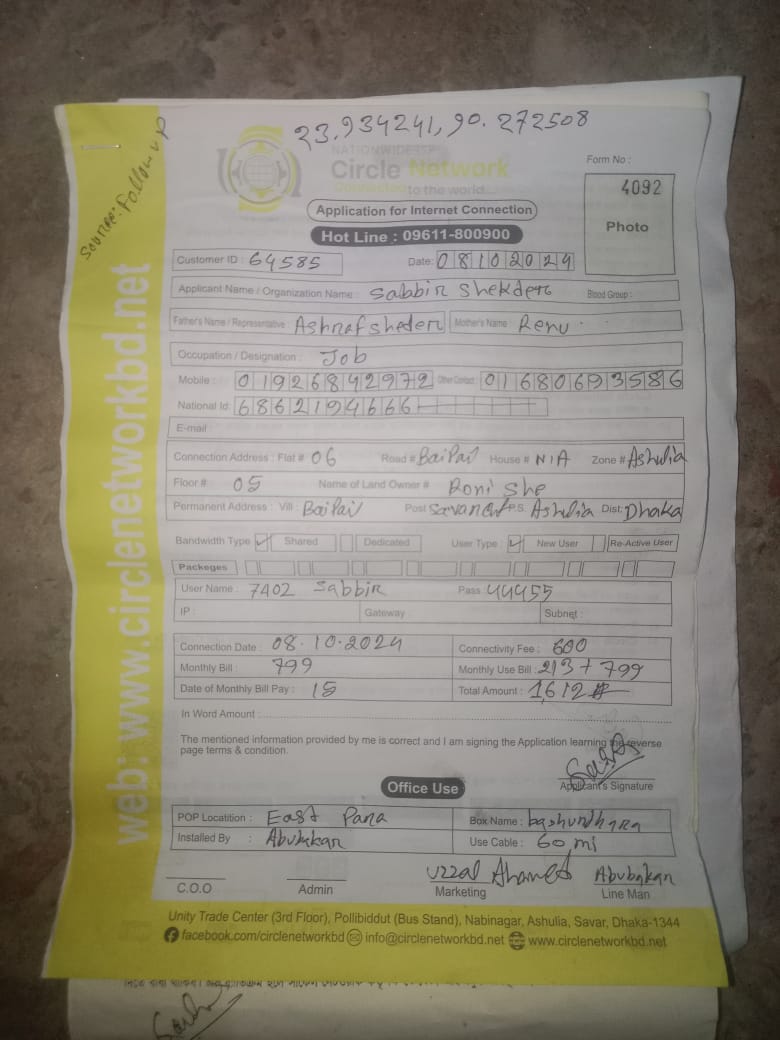 23.934241, 90.272508
Source: Follow up
NATIONWIDE ISP
Circle Network
Connected to the world...
Form No :
4092
Photo
Application for Internet Connection
Hot Line : 09611-800900
Customer ID : 64585 Date: 08102024
Applicant Name / Organization Name : Sabbir Shekder Blood Group :
Father's Name / Representative : Ashraf sheder Mother's Name : Renu
Occupation / Designation : Job
Mobile : 01926842972 Other Contact : 01680693586
National Id: 6862194666
E-mail :
Connection Address : Flat # 06 Road # BaiPail House # N/A Zone # Ashulia
Floor # 05 Name of Land Owner # Roni She
Permanent Address : Vill : BaiPail Post P.S. Ashulia Dist: Dhaka
Bandwidth Type ✓ Shared Dedicated User Type : ✓ New User Re-Active User
Packeges
User Name : 7402 Sabbir Pass 44455
IP : Gateway : Subnet :
Connection Date : 08.10.2024 Connectivity Fee : 600
Monthly Bill : 799 Monthly Use Bill : 213 + 799
Date of Monthly Bill Pay : 15 Total Amount : 1612
In Word Amount :
The mentioned information provided by me is correct and I am signing the Application learning the reverse
page terms & condition.
Applicant's Signature
Office Use
POP Locatition : East Para Box Name : bashundhara
Installed By : Abubakar Use Cable : 60 mi
Uzzal Ahamed Abubakar
C.O.O Admin Marketing Line Man
Unity Trade Center (3rd Floor), Pollibiddut (Bus Stand), Nabinagar, Ashulia, Savar, Dhaka-1344
facebook.com/circlenetworkbd info@circlenetworkbd.net www.circlenetworkbd.net
web: www.circlenetworkbd.net